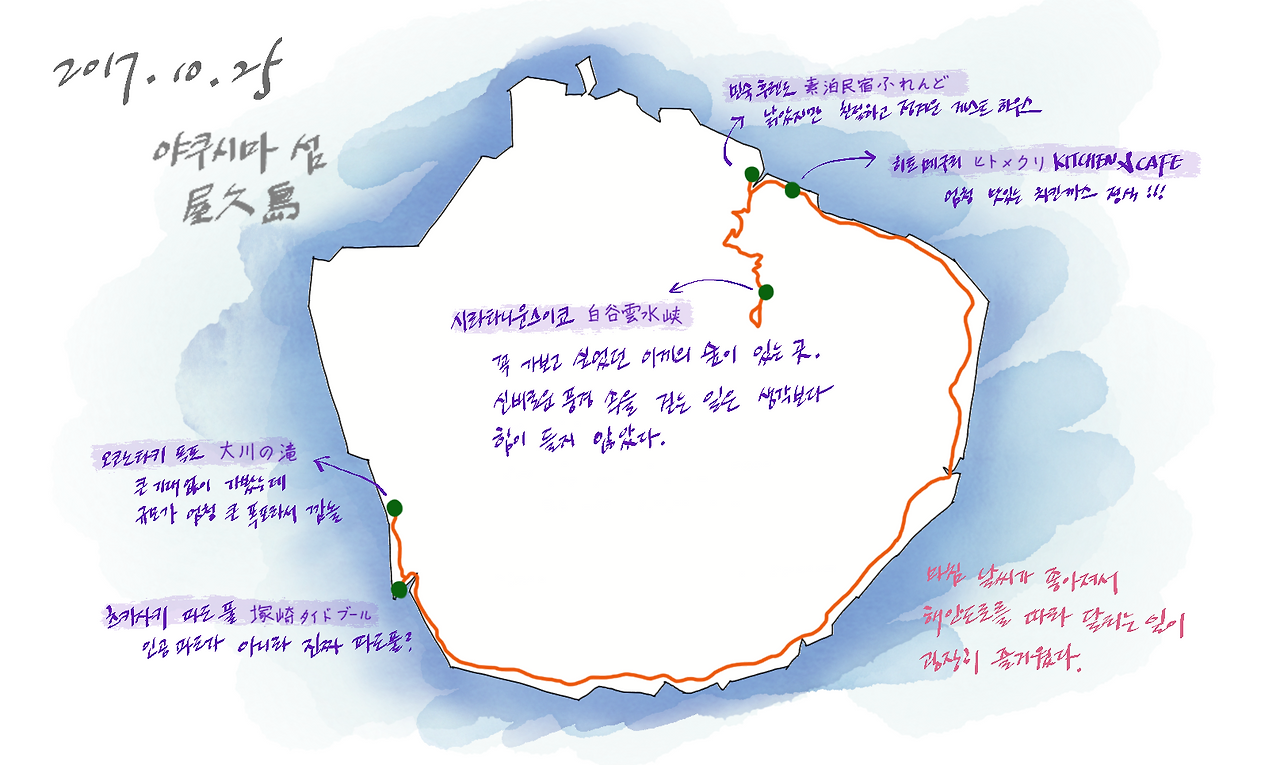 2017.10.25
야쿠시마 섬
屋久島
민숙 후렌도 素泊民宿ふれんど
낡았지만 친절하고 정겨운 게스트 하우스
히토메구리 ヒトメクリ KITCHEN & CAFE
엄청 맛있는 치킨까스 정식!!!
시라타니운스이쿄 白谷雲水峡
꼭 가보고 싶었던 이끼의 숲이 있는 곳.
신비로운 풍경 속을 걷는 일은 생각보다
힘이 들지 않았다.
오코노타키 폭포 大川の滝
큰 기대 없이 가봤는데
규모가 엄청 큰 폭포라서 깜놀
츠카사키 파도 풀 塚崎タイドプール
인공파도가 아니라 진짜 파도풀?
마침 날씨가 좋아져서
해안도로를 따라 달리는 일이
굉장히 즐거웠다.